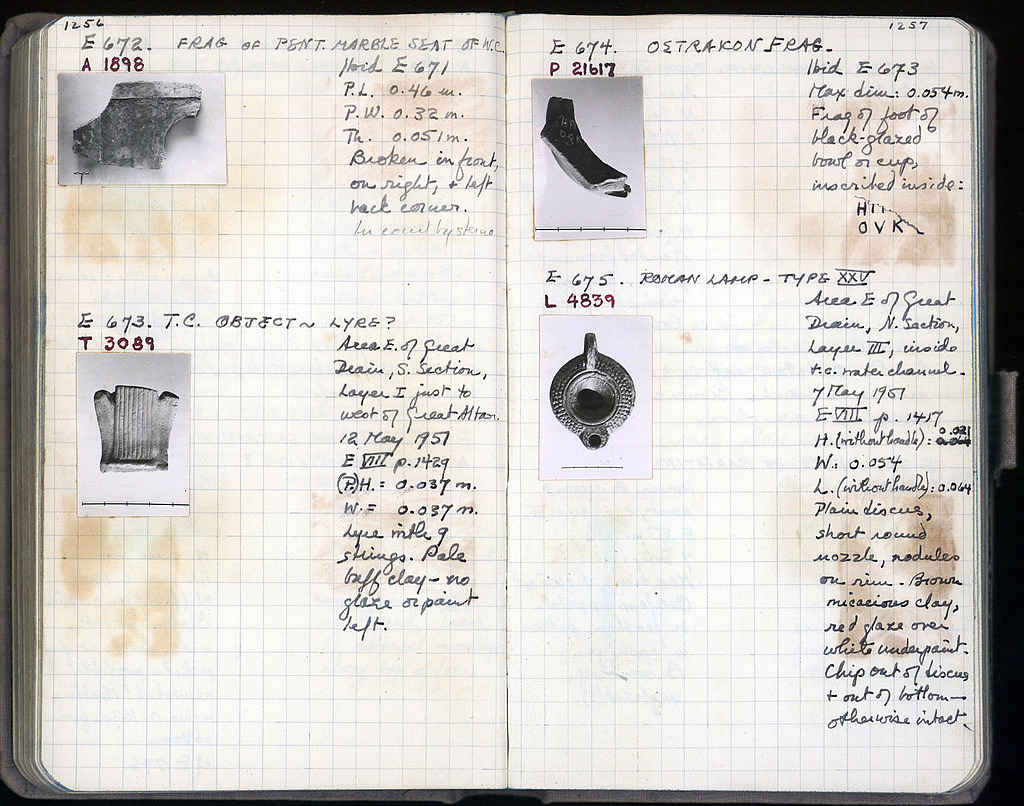 1256
E 672. FRAG OF PENT. MARBLE SEAT OF W.C.
A 1898
Ibid E 671
P.L. 0.46 m.
P.W. 0.32 m.
Th. 0.051 m.
Broken in front,
on right, + left
back corner.
In court by stano
E 673. T.C. OBJECT ~ LYRE?
T 3089
Area E. of Great
Drain, S. Section,
Layer I just to
west of Great Altar.
12 May 1951
E VIII p. 1429
(P.)H. = 0.037 m.
W. = 0.037 m.
Lyre with 9
strings. Pale
buff clay – no
glaze or paint
left.
1257
E 674. OSTRAKON FRAG.
P 21617
Ibid E 673
Max dim: 0.054 m.
Frag of foot of
black-glazed
bowl or cup,
inscribed inside:
ΟVΚ
E 675. ROMAN LAMP – TYPE XXV
L 4839
Area E of Great
Drain, N. Section,
Layer III, inside
t.c. water channel.
7 May 1951
E VIII p. 1417
H. (without handle): 0.021
W.: 0.054
L. (without handle): 0.064
Plain discus,
short round
nozzle, nodules
on rim. Brown
micacious clay,
red glaze over
white underpaint.
Chip out of discus
+ out of bottom –
otherwise intact.